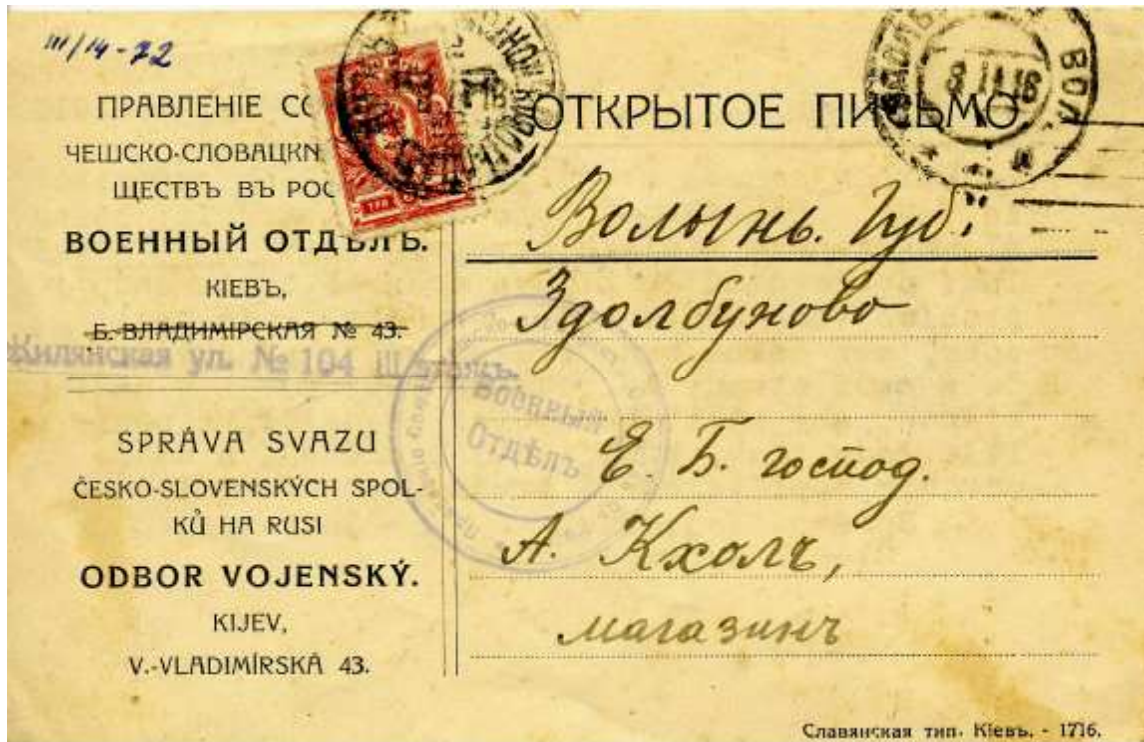 III/14-72
ПРАВЛЕНІЕ
ЧЕШСКО-СЛОВАЦКИ
ЩЕСТВЪ ВЪ РОС
ВОЕННЫЙ ОТДѢЛЪ.
КІЕВЪ,
Б.-ВЛАДИМІРСКАЯ № 43.
Жилянская ул. № 104 III этажъ.
SPRÁVA SVAZU
ČESKO-SLOVENSKÝCH SPOL-
KŮ НА RUSI
ODBOR VOJENSKÝ.
KIJEV,
V.-VLADIMÍRSKÁ 43.
ОТКРЫТОЕ ПИСЬМО
ВОЛ.
8 11 16
Волынь. Губ.
Здолбуново
Военный
Отдѣлъ
Е. Б. господ.
А. Кхолъ,
магазинъ
Славянская тип. Кіевъ. - 1716.